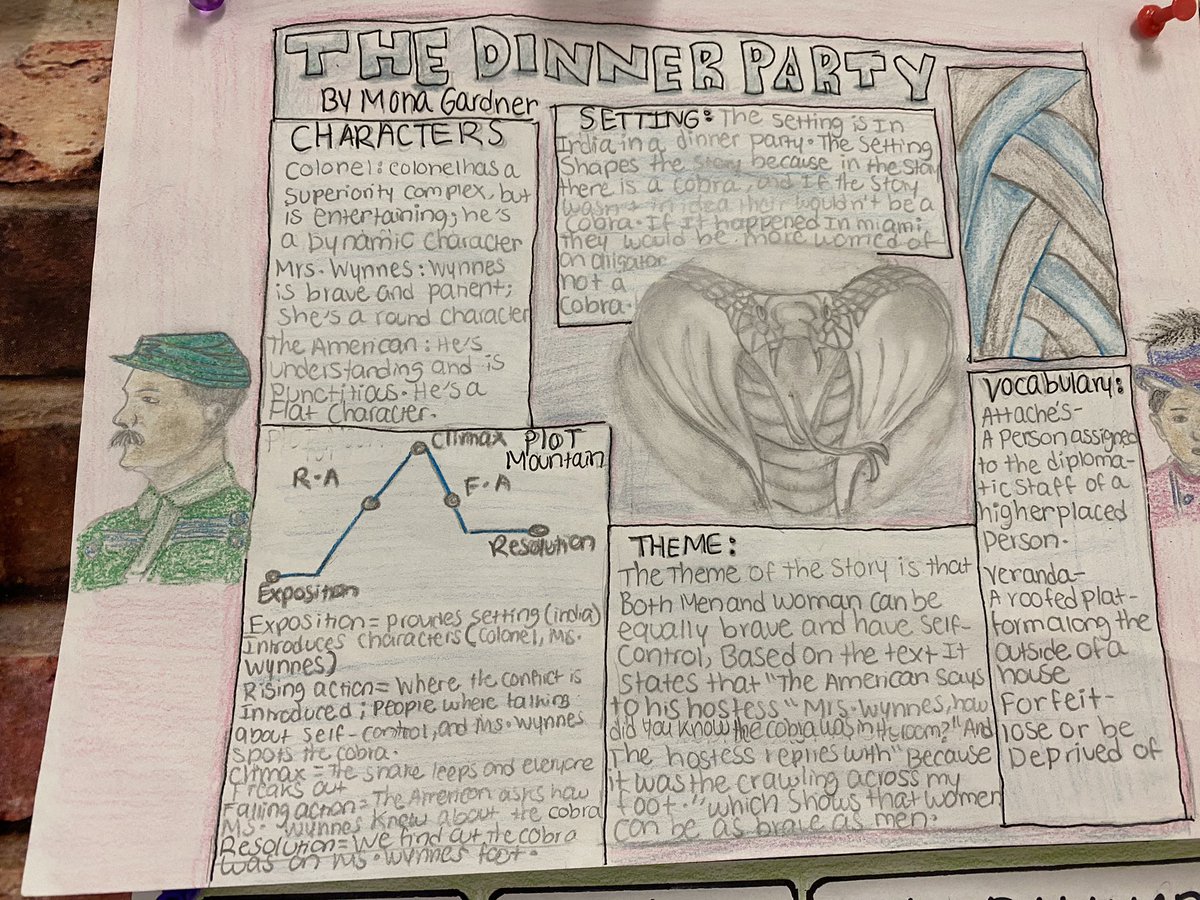 THE DINNER PARTY
By Mona Gardner
CHARACTERS
Colonel: colonel has a
superiority complex, but
is entertaining; he's
a Dynamic character
Mrs. Wynnes: Wynnes
is brave and patient;
she's a round character
The American: He's
understanding and is
Punctitious. He's a
Flat Character.
SETTING: The setting is In
India in a dinner party. The setting
Shapes the story because in the story
there is a cobra, and If the story
wasn't in idea their wouldn't be a
Cobra. If It happened In miami
they would be more worried of
an alligator
not a
cobra.
Climax PLOT
Mountain
R.A
F.A
Resolution
Exposition
Exposition = provides setting (india)
Introduces characters (colonel, Ms.
Wynnes)
Rising action = Where the conflict is
Introduced; People where talking
about self-control, and Ms. Wynnes
spots the cobra.
Climax = The snake leeps and everyone
Freaks out
Falling action = The American asks how
Ms. Wynnes knew about the cobra
Resolution = We find out the cobra
was on Ms. Wynnes foot.
THEME:
The Theme of the Story is that
Both Men and woman can be
equally brave and have self-
control, Based on the text It
States that "The American says
to his hostess "Mrs. Wynnes, how
did you know the cobra was in the room?" And
The hostess replies with "Because
it was the crawling across my
foot." which shows that women
can be as brave as men.
Vocabulary:
Attache's-
A Person assigned
to the diploma-
tic Staff of a
higher placed
Person.
Veranda-
A roofed plat-
form along the
outside of a
house
Forfeit-
lose or be
Deprived of